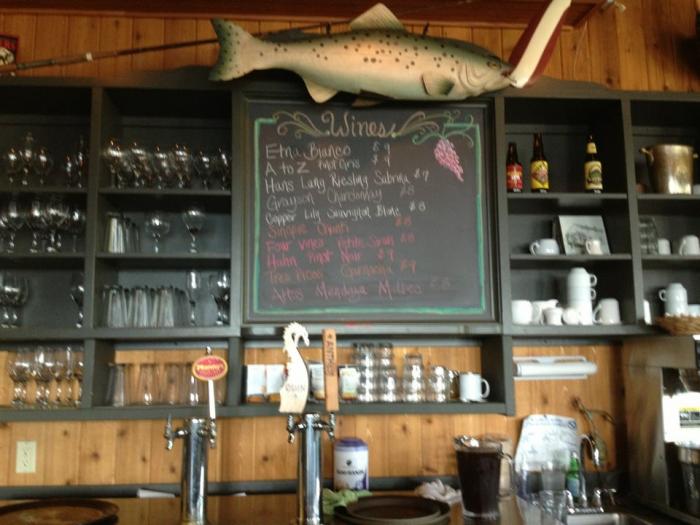 Wines
Etna Bianco $9
A to Z Pinot Gris $9
Hans Lang Riesling $7
Grayson Chardonnay $8
Copper Lily Sauvignon Blanc $8
Chianti $8
Four Vines Petite Sirah $8
Hahn Pinot Noir $9
Tres Picos Garnacha $9
Altos Mendoza Malbec $8
ODIN